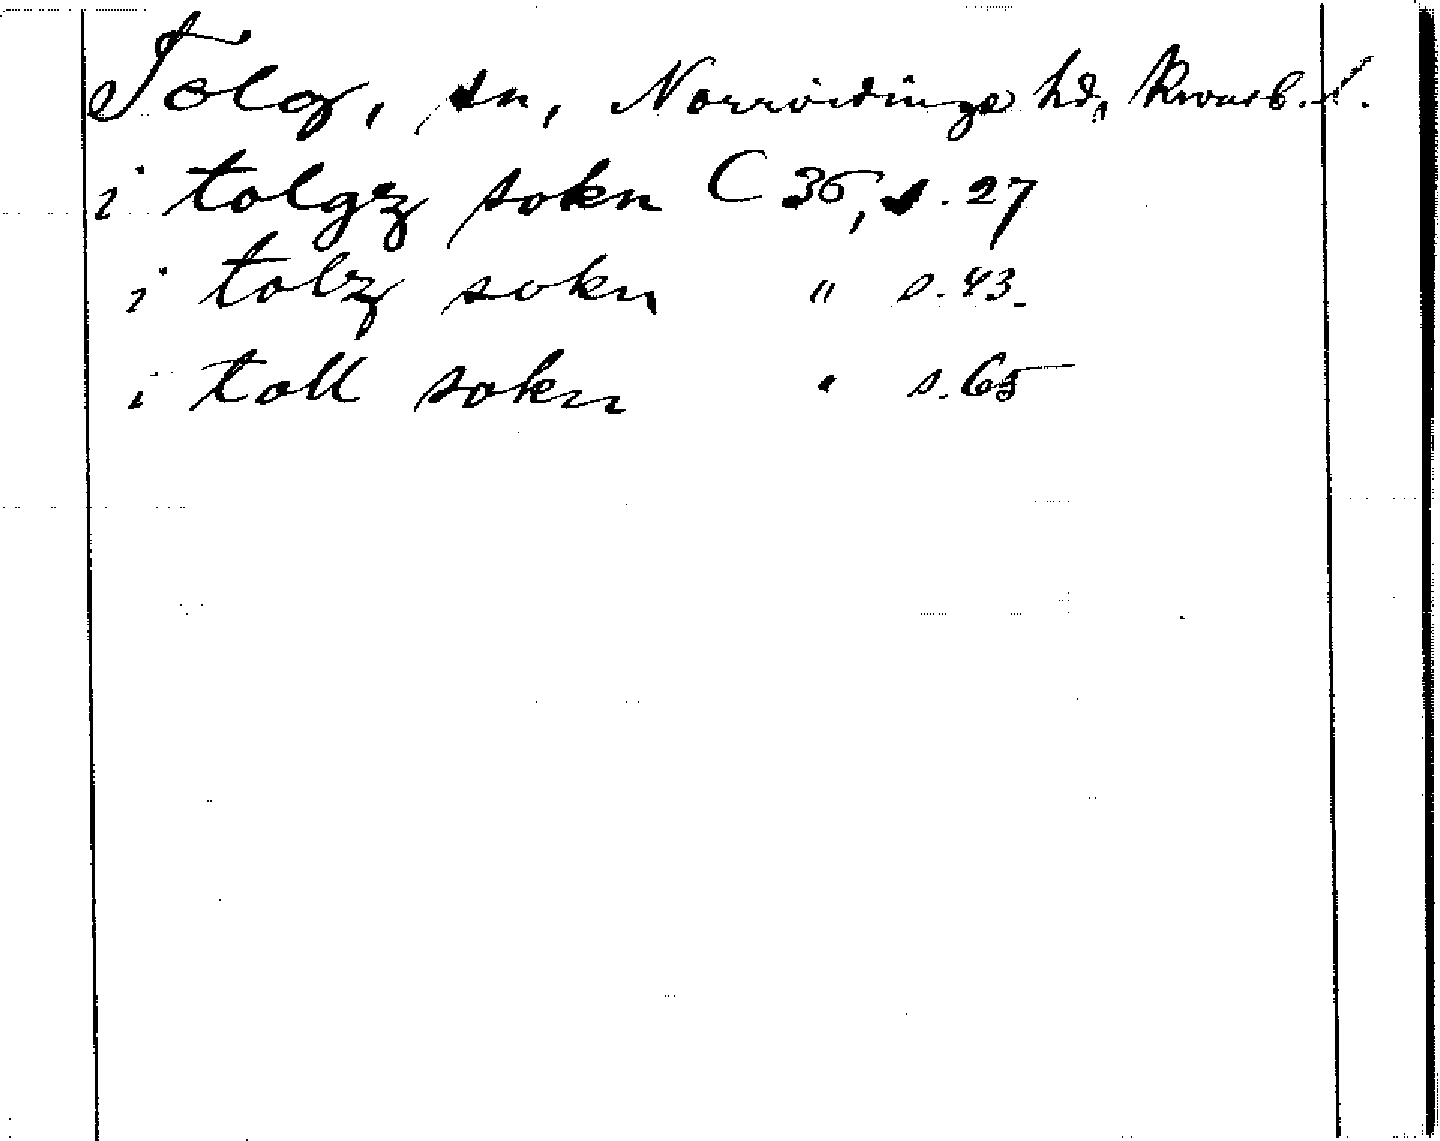 Tolg, sn, Norrvidinge hd, Kronob. l.
i tolgz sokn C 36, s. 27
i tolz sokn " s. 43.
i toll sokn " s. 65